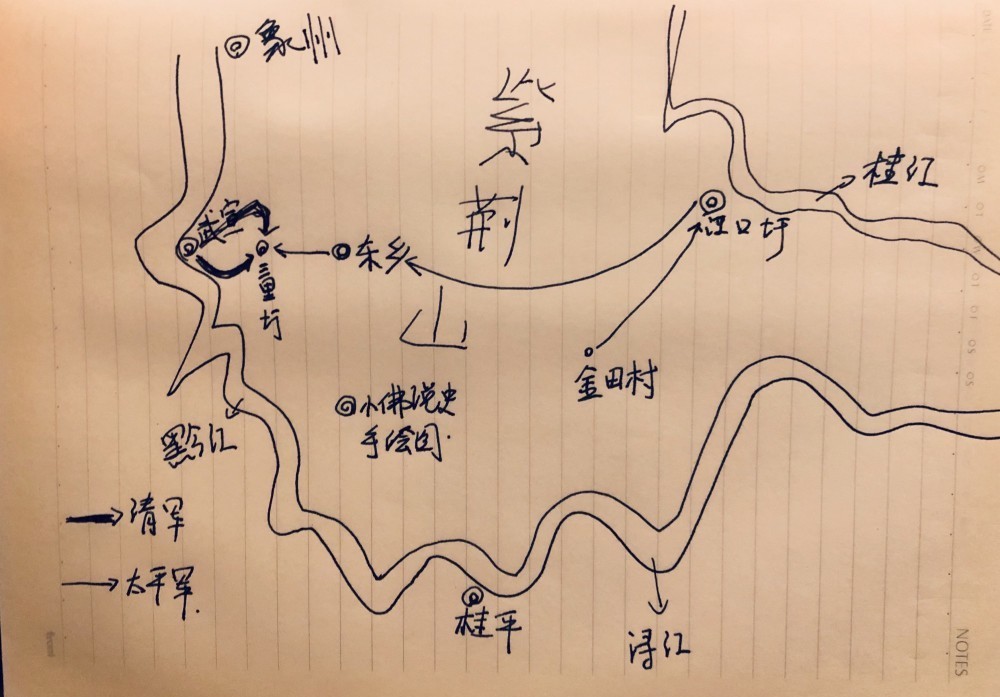 象州
紫
荆
山
桂江
江口圩
武宣
三里圩
东乡
金田村
小佛说史
手绘图.
黔江
清军
太平军.
桂平
浔江
NOTES